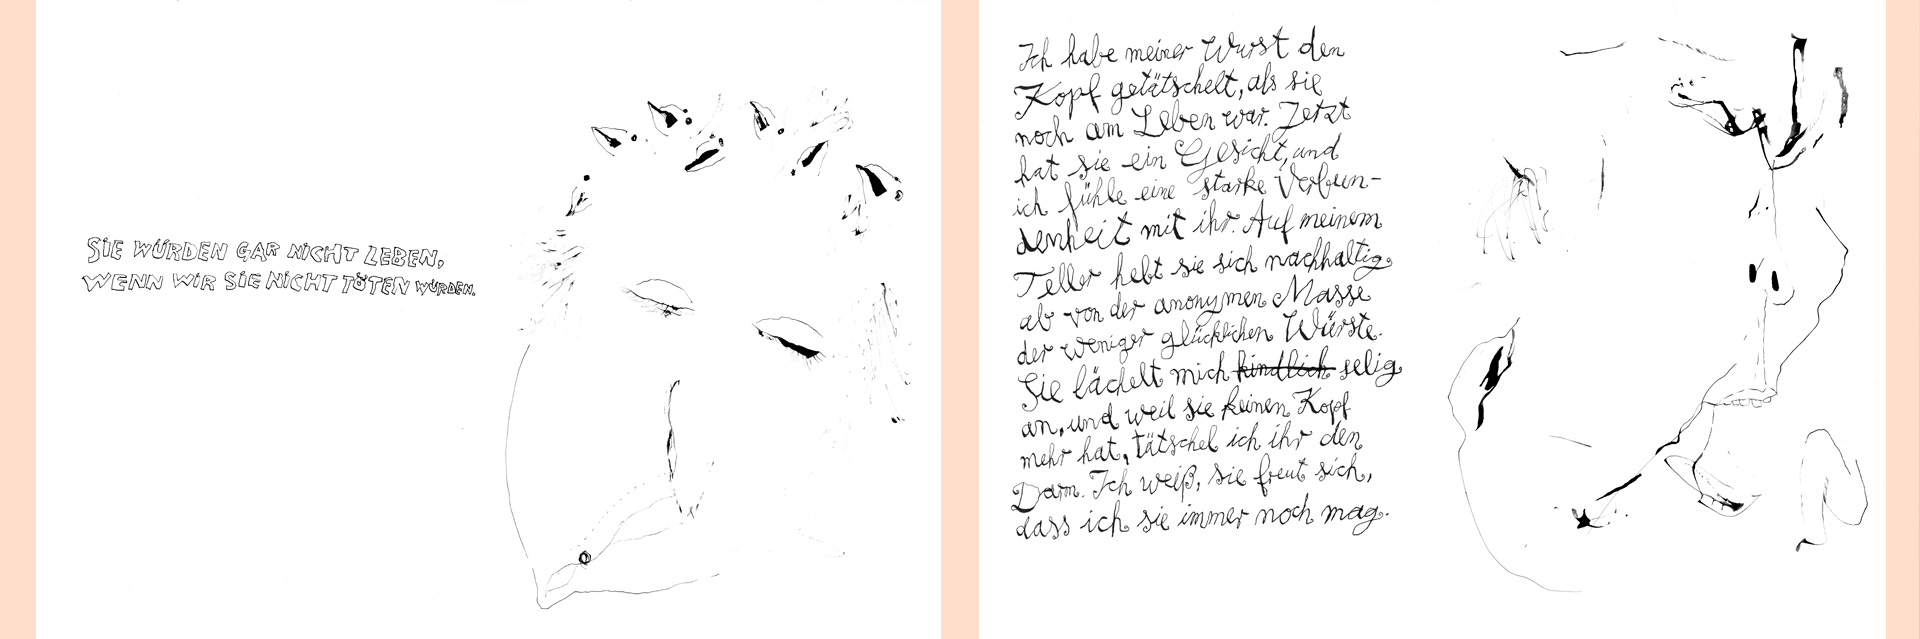 SIE WÜRDEN GAR NICHT LEBEN,
WENN WIR SIE NICHT TÖTEN WÜRDEN.
Ich habe meiner Wurst den
Kopf getätschelt, als sie
noch am Leben war. Jetzt
hat sie ein Gesicht, und
ich fühle eine starke Verbun-
denheit mit ihr. Auf meinem
Teller hebt sie sich nachhaltig
ab von der anonymen Masse
der weniger glücklichen Würste.
Sie lächelt mich kindlich selig
an, und weil sie keinen Kopf
mehr hat, tätschel ich ihr den
Darm. Ich weiß, sie freut sich,
dass ich sie immer noch mag.